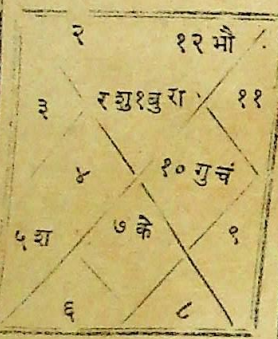 २ १२ भौ
३ र शु १ बु रा ११
४ १० गु चं
५ श ७ के ९
६ ८